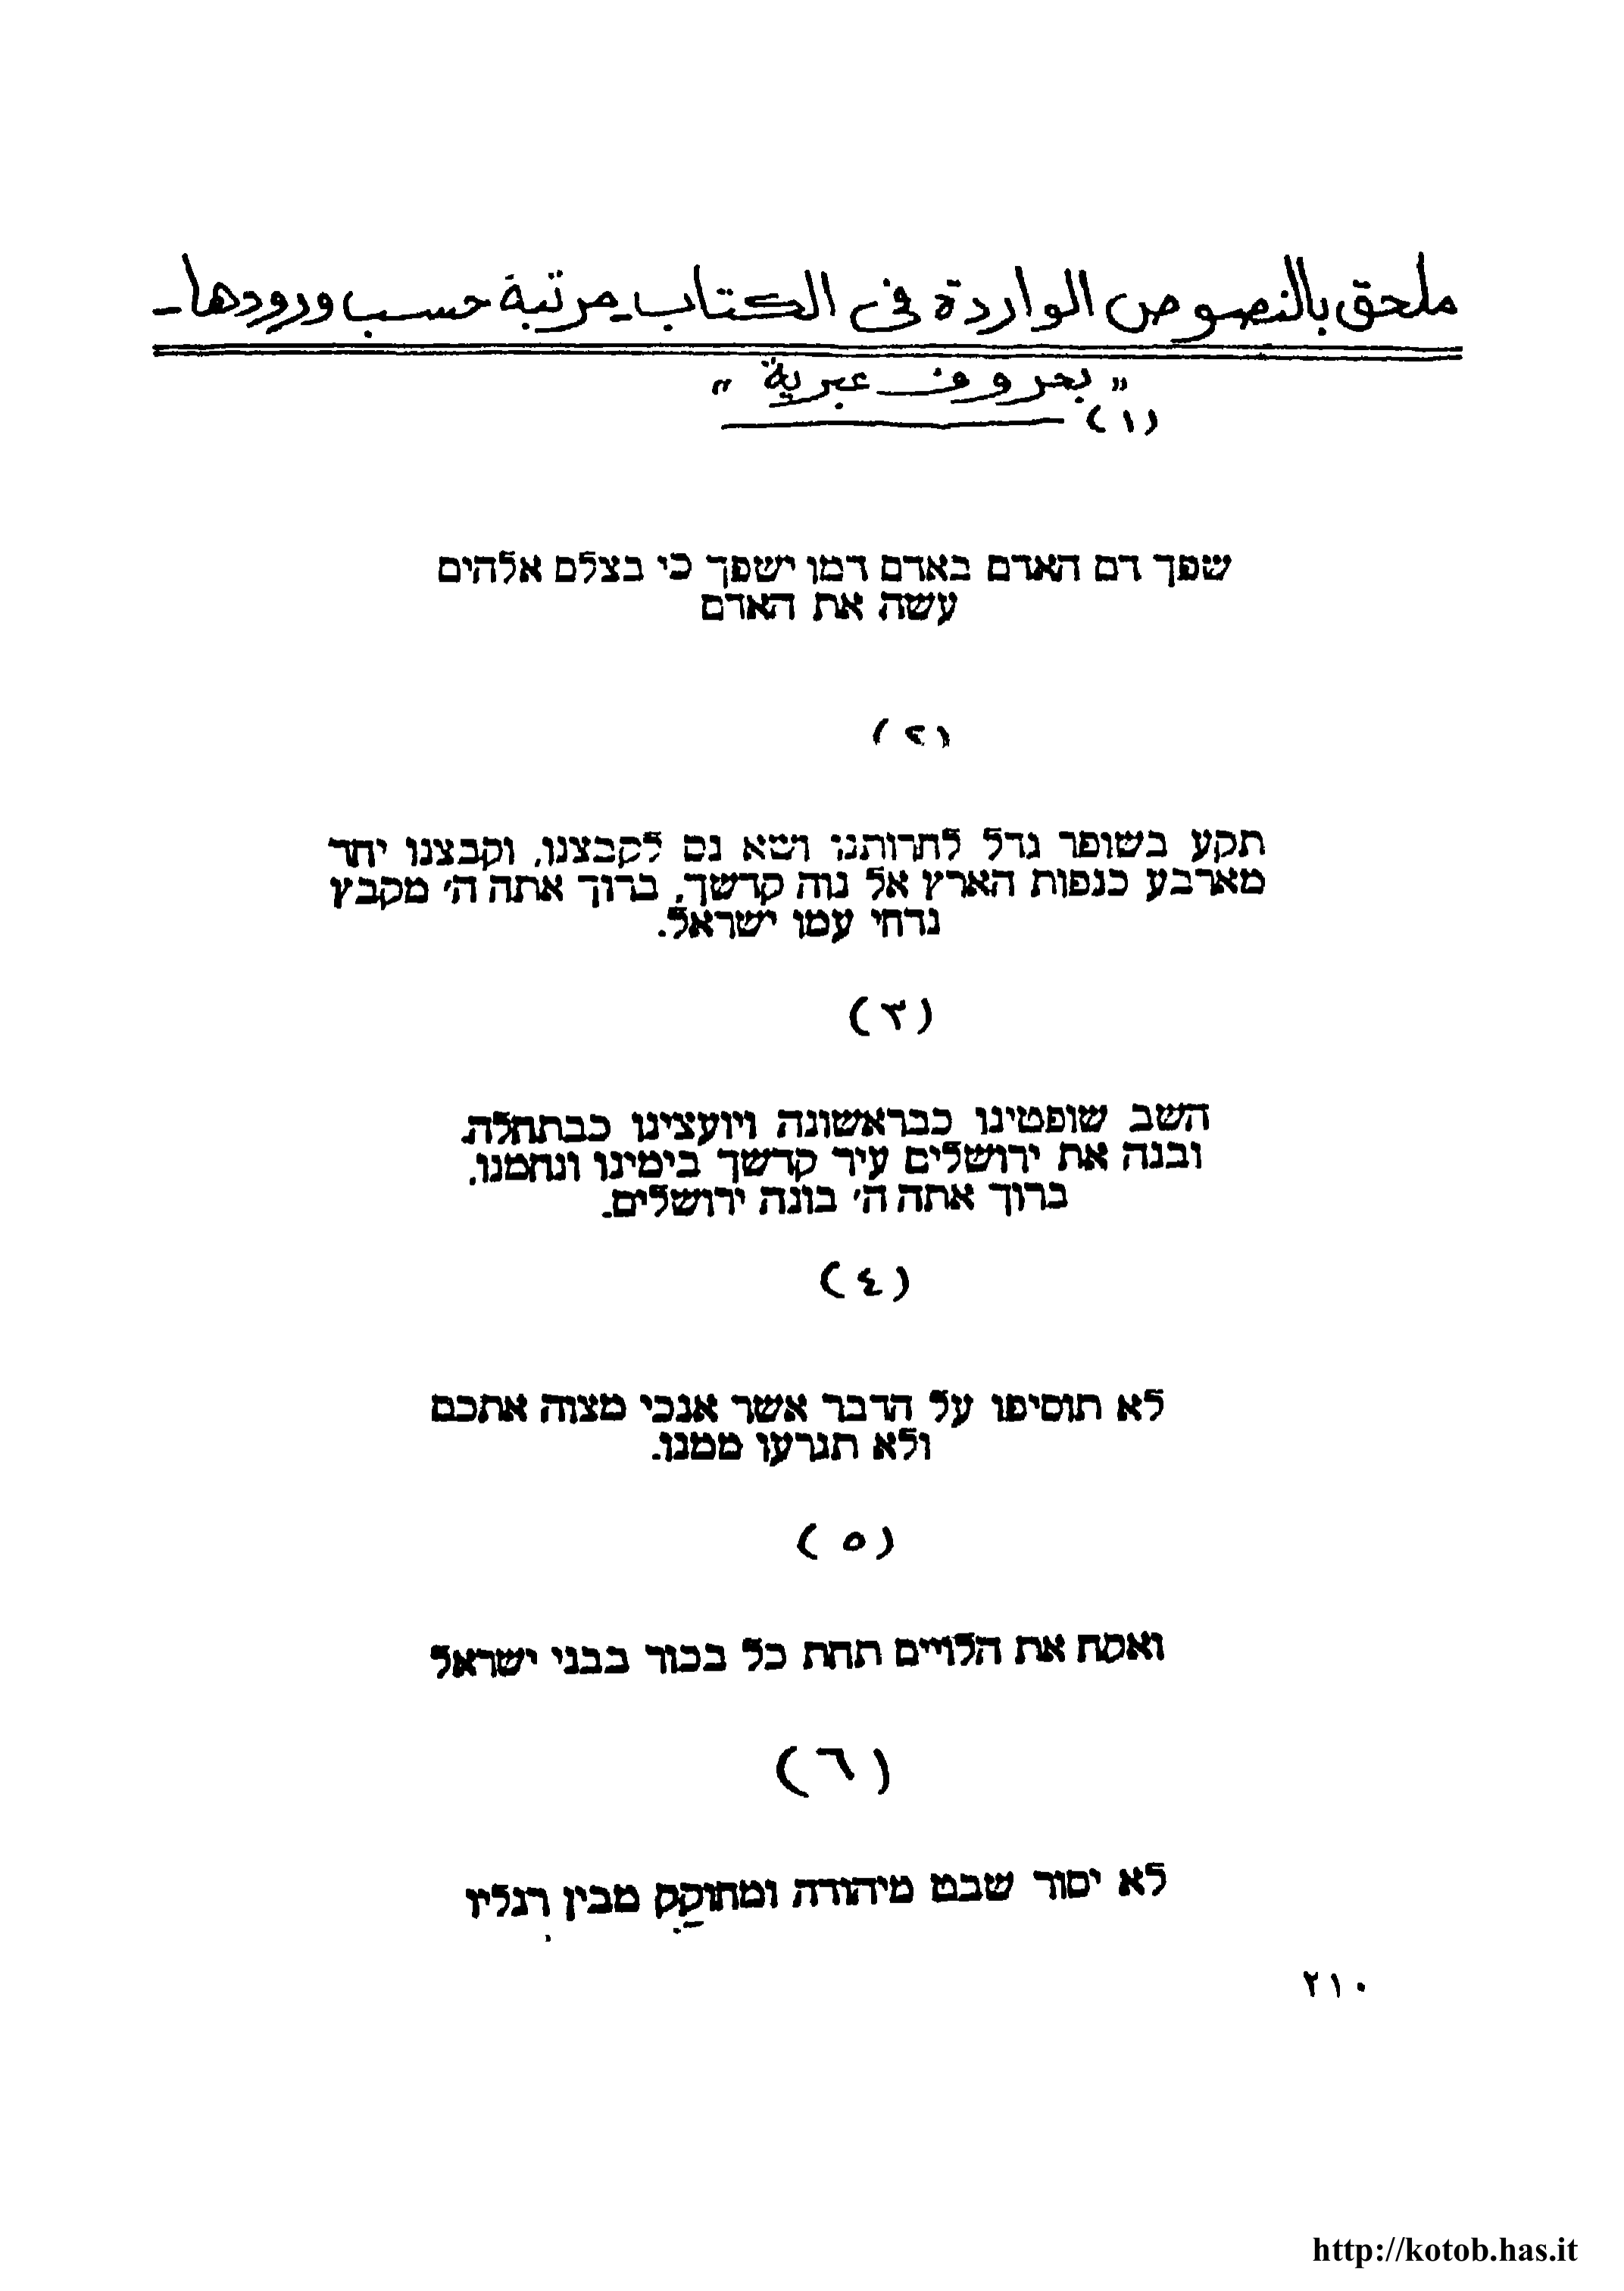 ملحق بالنصوص الواردة فى الكتاب مرتبة حسب ورودها -
" بحروف عبرية "
(١)
שפך דם האדם באדם דמו ישפך כי בצלם אלהים
עשה את האדם
(٢)
תקע בשופר גדל לחרותנו ושא נס לקבצנו, וקבצנו יחד
מארבע כנפות הארץ אל נוה קדשך, ברוך אתה ה׳ מקבץ
נדחי עמו ישראל.
(٣)
השב שופטינו כבראשונה ויועצינו כבתחלה.
ובנה את ירושלים עיר קדשך בימינו ונחמנו,
ברוך אתה ה׳ בונה ירושלים.
(٤)
לא תוסיפו על הדבר אשר אנכי מצוה אתכם
ולא תגרעו ממנו.
(٥)
ואקח את הלויים תחת כל בכור בבני ישראל
(٦)
לא יסור שבט מיהודה ומחוקק מבין רגליו
٢١٠
http://kotob.has.it